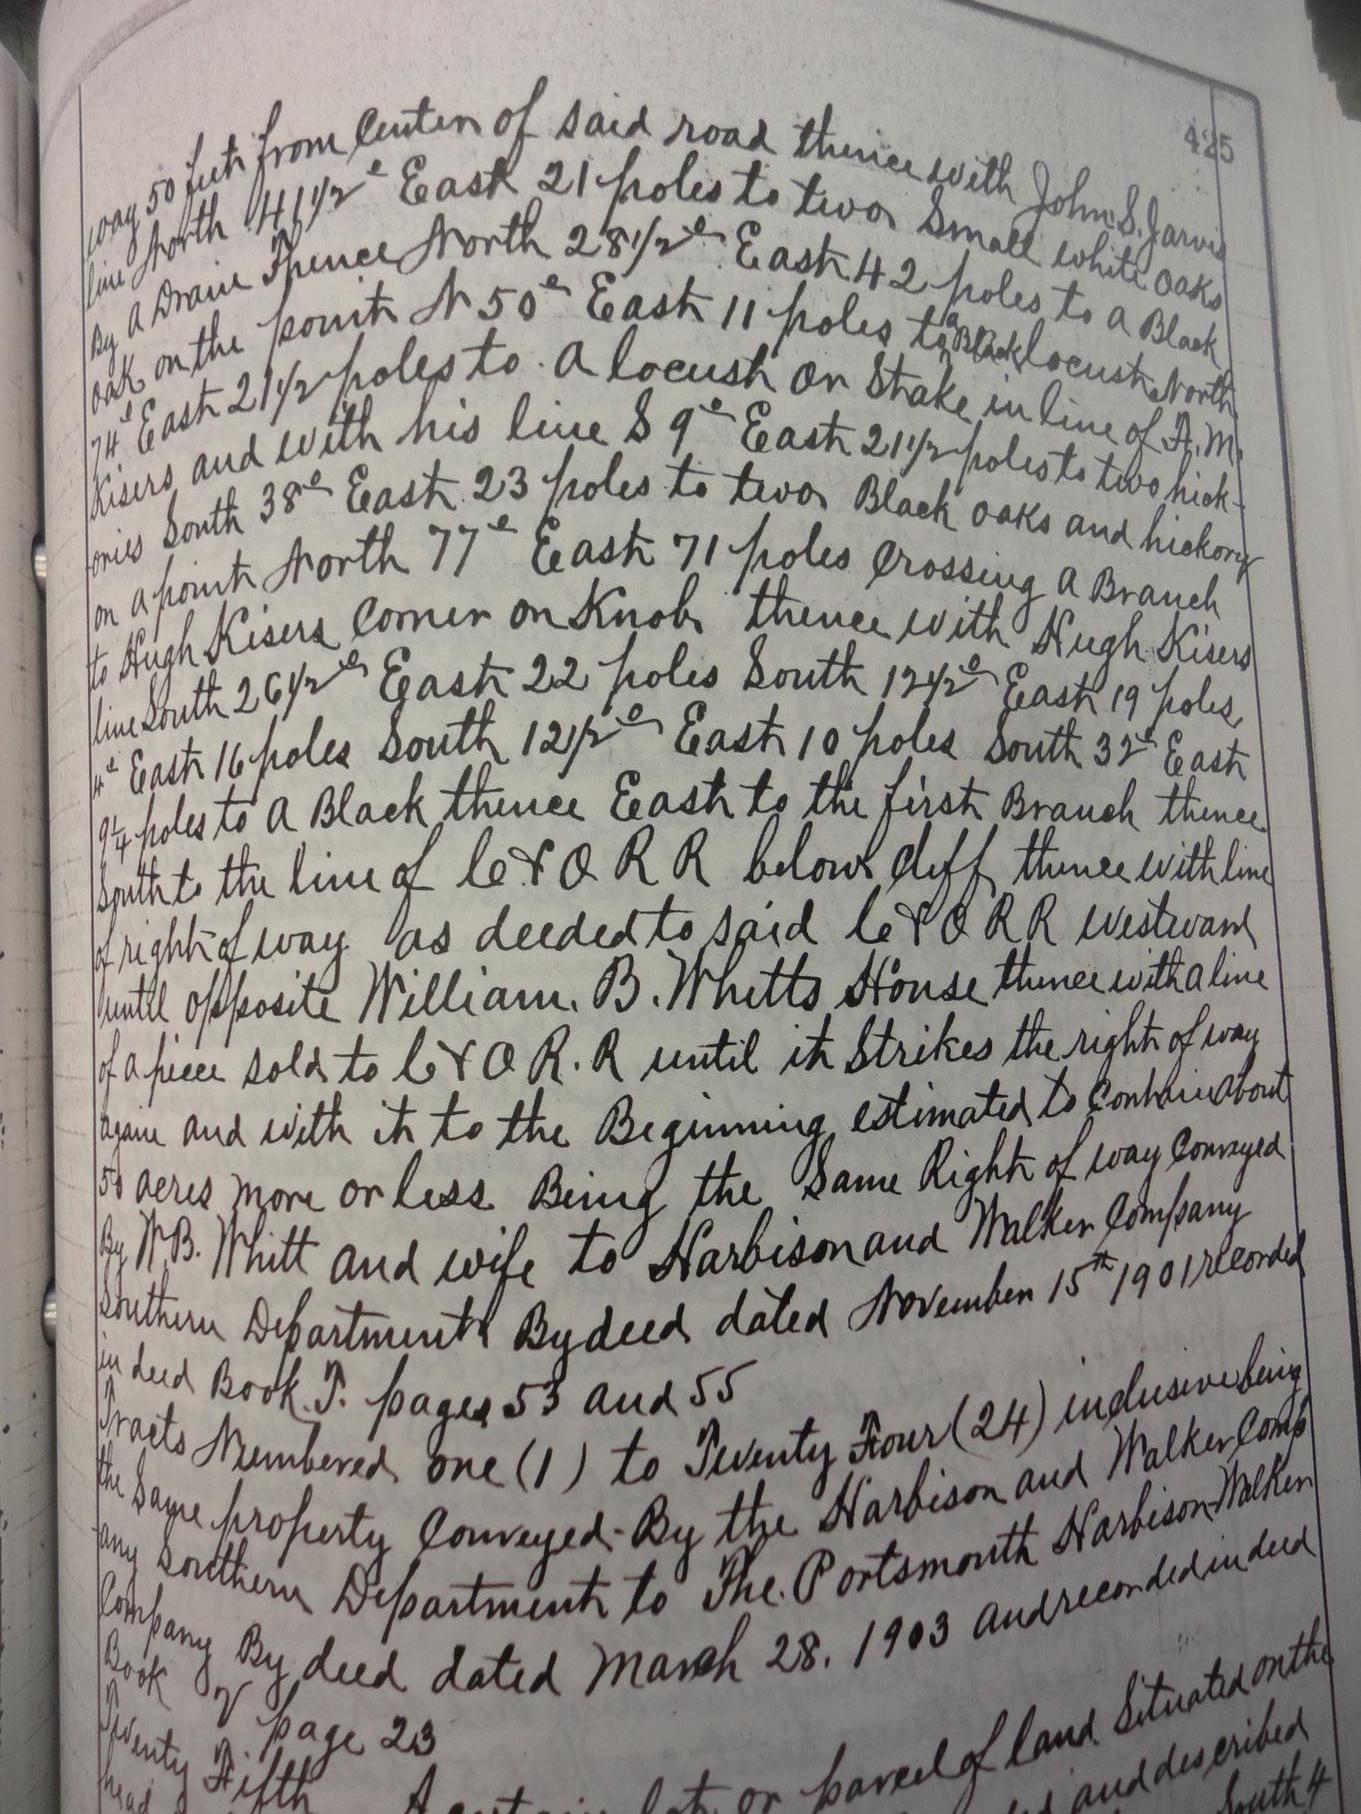 425
way 50 feet from Center of said road thence with John S. Jarvis
line North 41 1/2° East 21 poles to two Small white oaks
By a Drain Thence North 28 1/2° East 42 poles to a Black
oak on the point N 50° East 11 poles to a Black locust North
74° East 21 1/2 poles to a locust or Stake in line of F. M.
Kisers and with his line S 9° East 21 1/2 poles to two hick-
ories South 38° East 23 poles to two Black oaks and hickory
on a point North 77° East 71 poles Crossing a Branch
to Hugh Kisers Corner on Knob thence with Hugh Kisers
line South 26 1/2° East 22 poles South 12 1/2° East 19 poles,
4° East 16 poles South 12 1/2° East 10 poles South 32° East
9 1/4 poles to a Black thence East to the first Branch thence
South to the line of C & O R R below cliff thence with line
of right of way as deeded to said C & O R R westward
until opposite William. B. Whitts House thence with a line
of a piece sold to C & O R. R until it Strikes the right of way
again and with it to the Beginning estimated to Contain about
50 acres more or less Being the Same Right of way Conveyed
By W.B. Whitt and wife to Harbison and Walker Company
Southern Department By deed dated November 15th 1901 recorded
in deed Book T. pages 53 and 55
Tracts Numbered one (1) to Twenty Four (24) inclusive being
the Same property Conveyed By the Harbison and Walker Comp
any Southern Department to The Portsmouth Harbison Walker
Company By deed dated March 28. 1903 and recorded in deed
Book page 23
Twenty Fifth A certain lot or parcel of land Situated on the
head and described
South 4